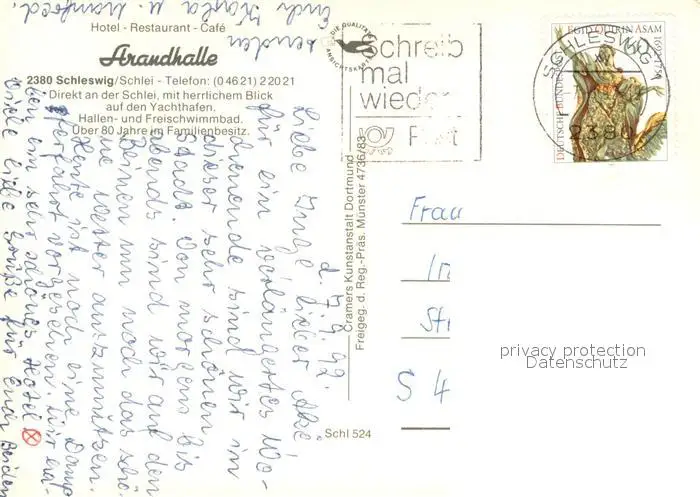 Hotel - Restaurant - Café
Strandhalle
2380 Schleswig/Schlei - Telefon: (0 46 21) 2 20 21
Direkt an der Schlei, mit herrlichem Blick
auf den Yachthafen.
Hallen- und Freischwimmbad.
Über 80 Jahre im Familienbesitz.
DIE QUALITÄTS
ANSICHTSKARTE
Schreib
mal
wieder
Post
EGID QUIRIN ASAM
1692-1750
60
DEUTSCHE BUNDESPOST
SCHLESWIG
2380
d. 7.9.92.
Liebe Inge, lieber
für ein verlängertes Wo-
chenende sind wir in
dieser sehr schönen
Stadt. Von morgens bis
abends sind wir auf den
Beinen um noch das schö-
ne Wetter auszunutzen.
Heute ist noch eine Damp-
ferfahrt vorgesehen. Wir
ein sehr schönes Hotel
Viele liebe Grüße für Euch Beiden
senden
Euch u. Manfred.
Cramers Kunstanstalt Dortmund
Freigeg. d. Reg.-Präs. Münster 4736/83
Schl 524
Frau
In
St
S 4
privacy protection
Datenschutz